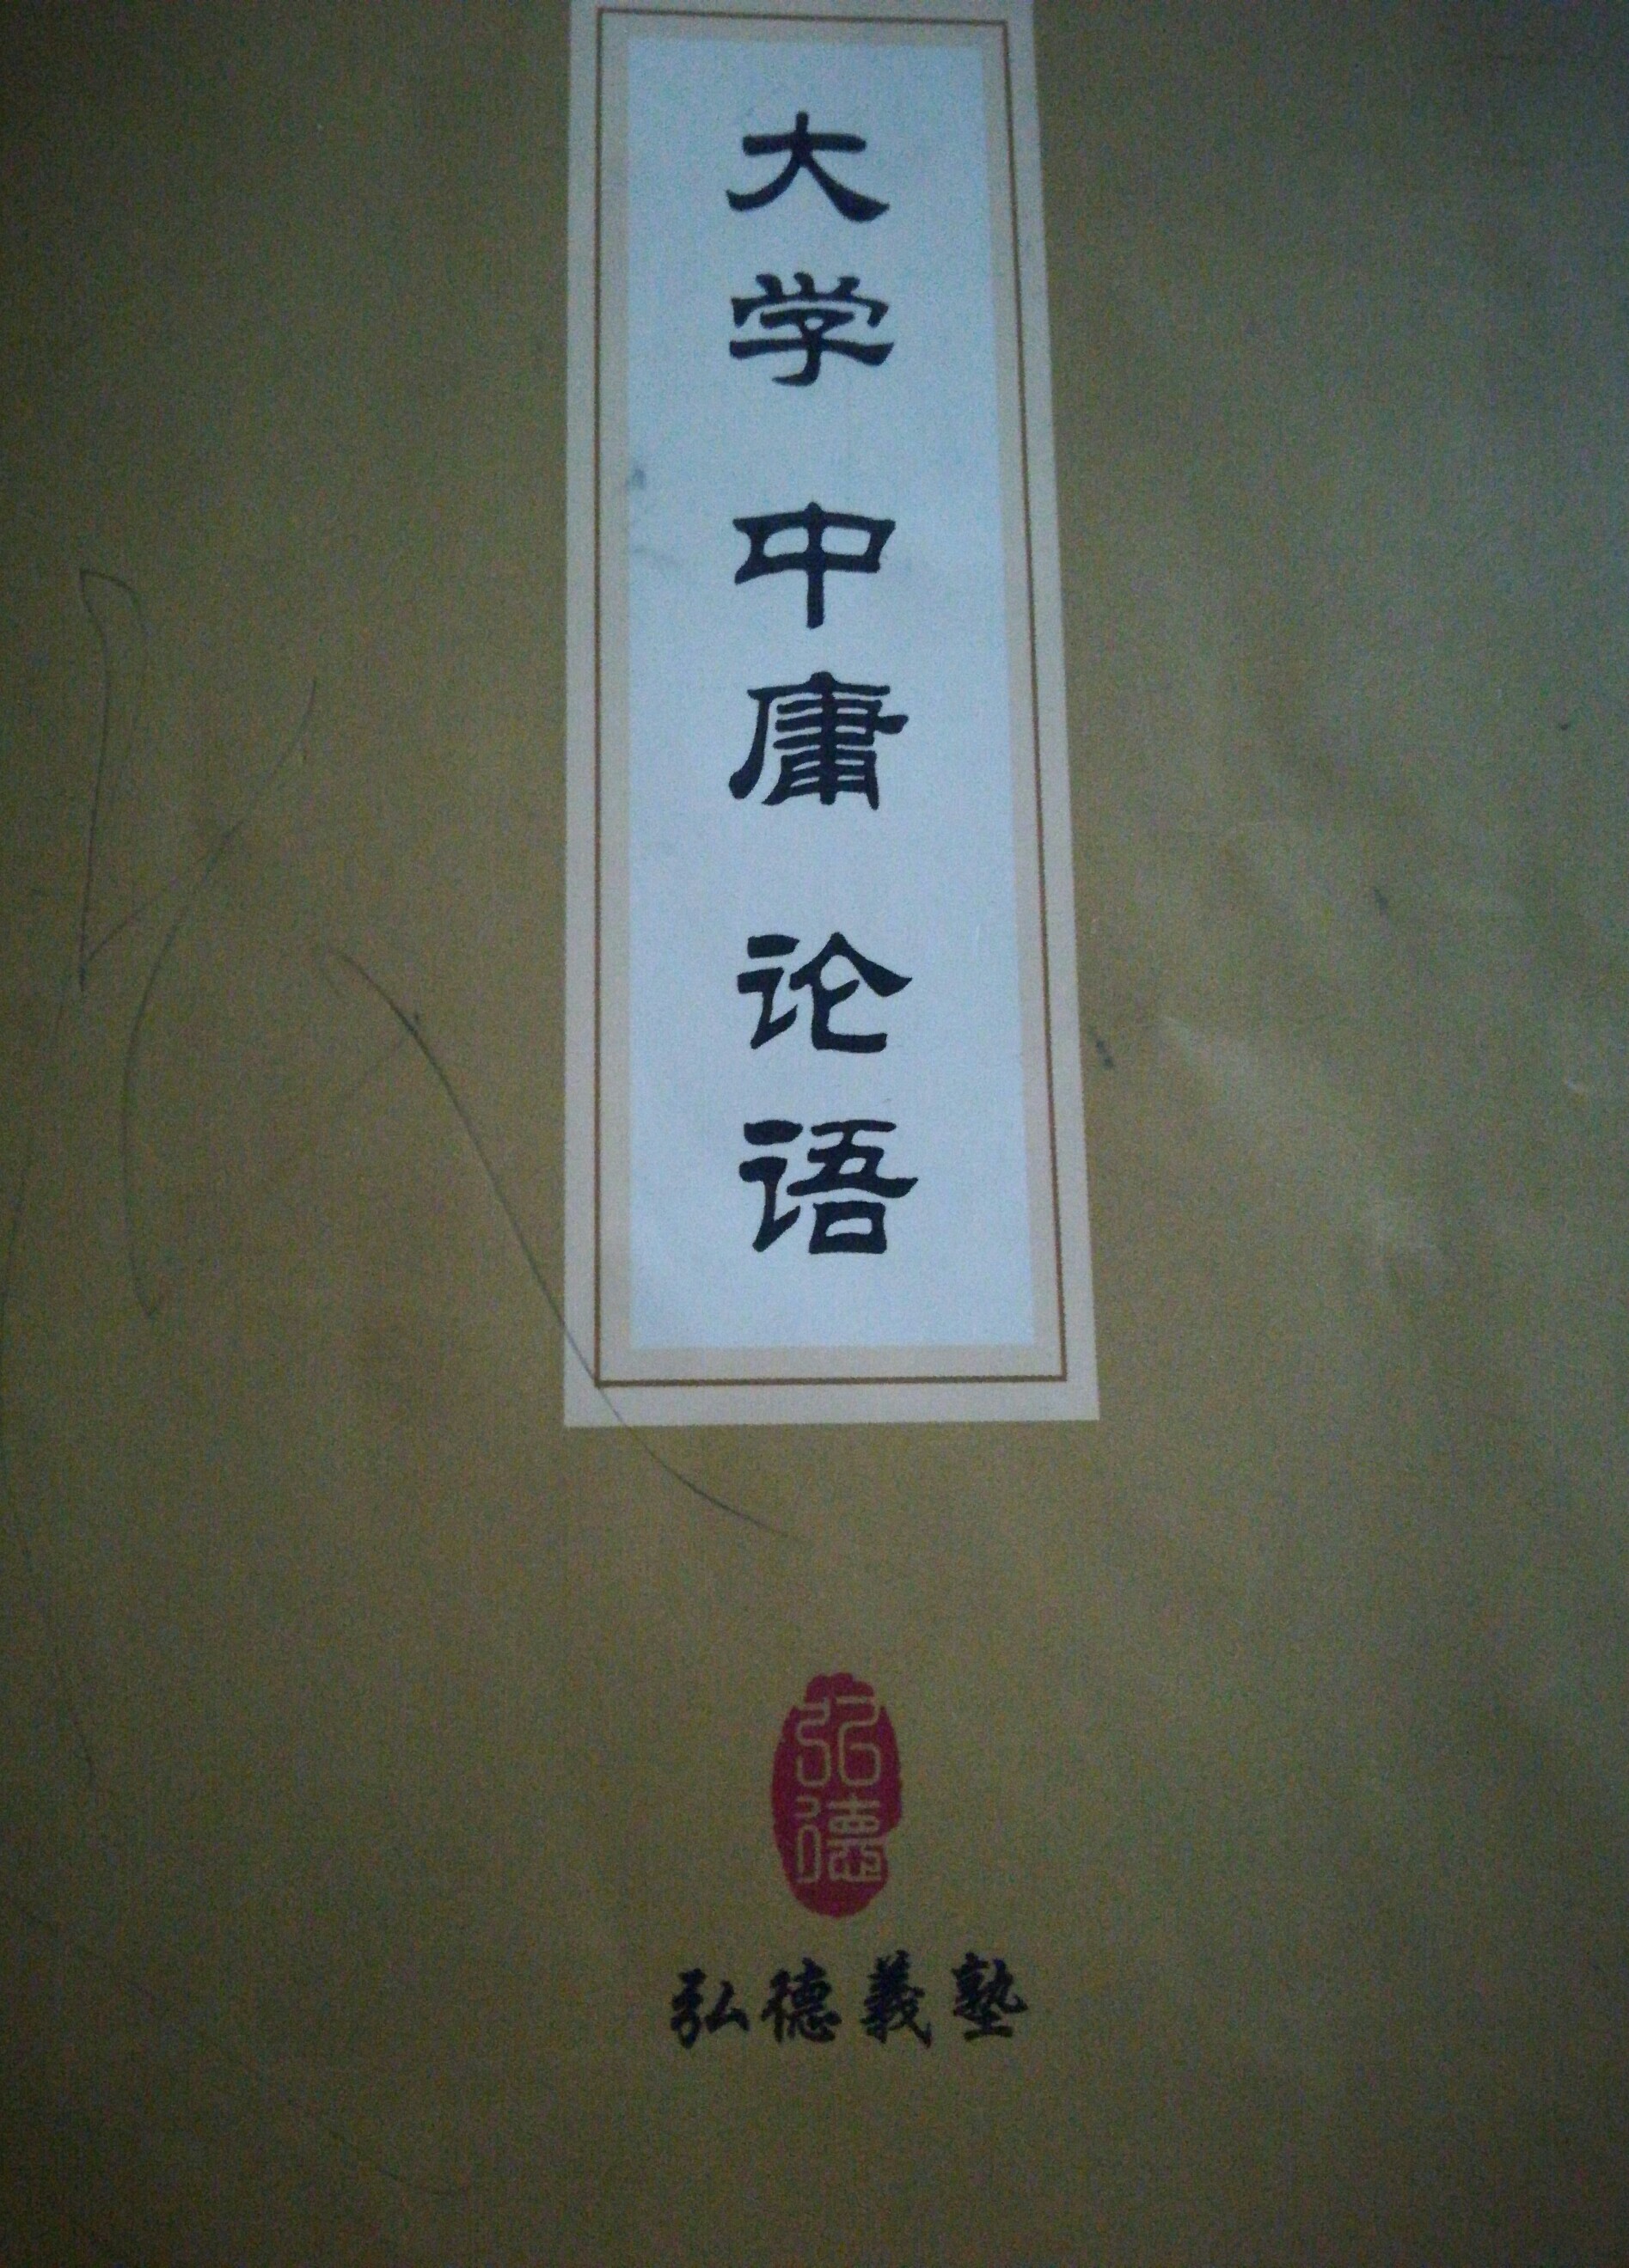 大学 中庸 论语
弘德
弘德義塾